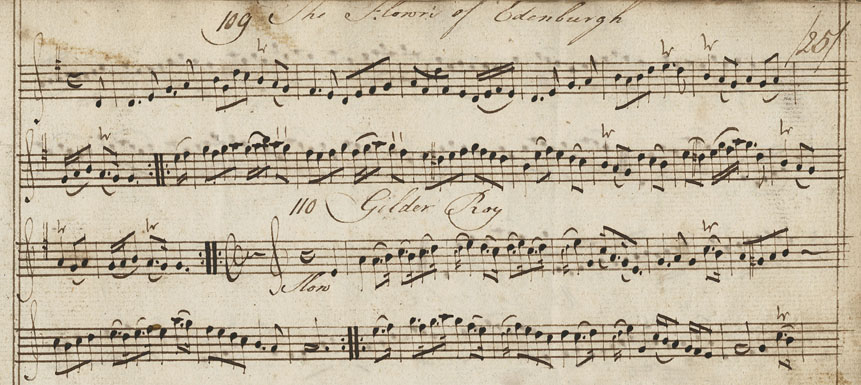 109 The Flowr of Edenburgh
25
110 Gilder Roy
Slow